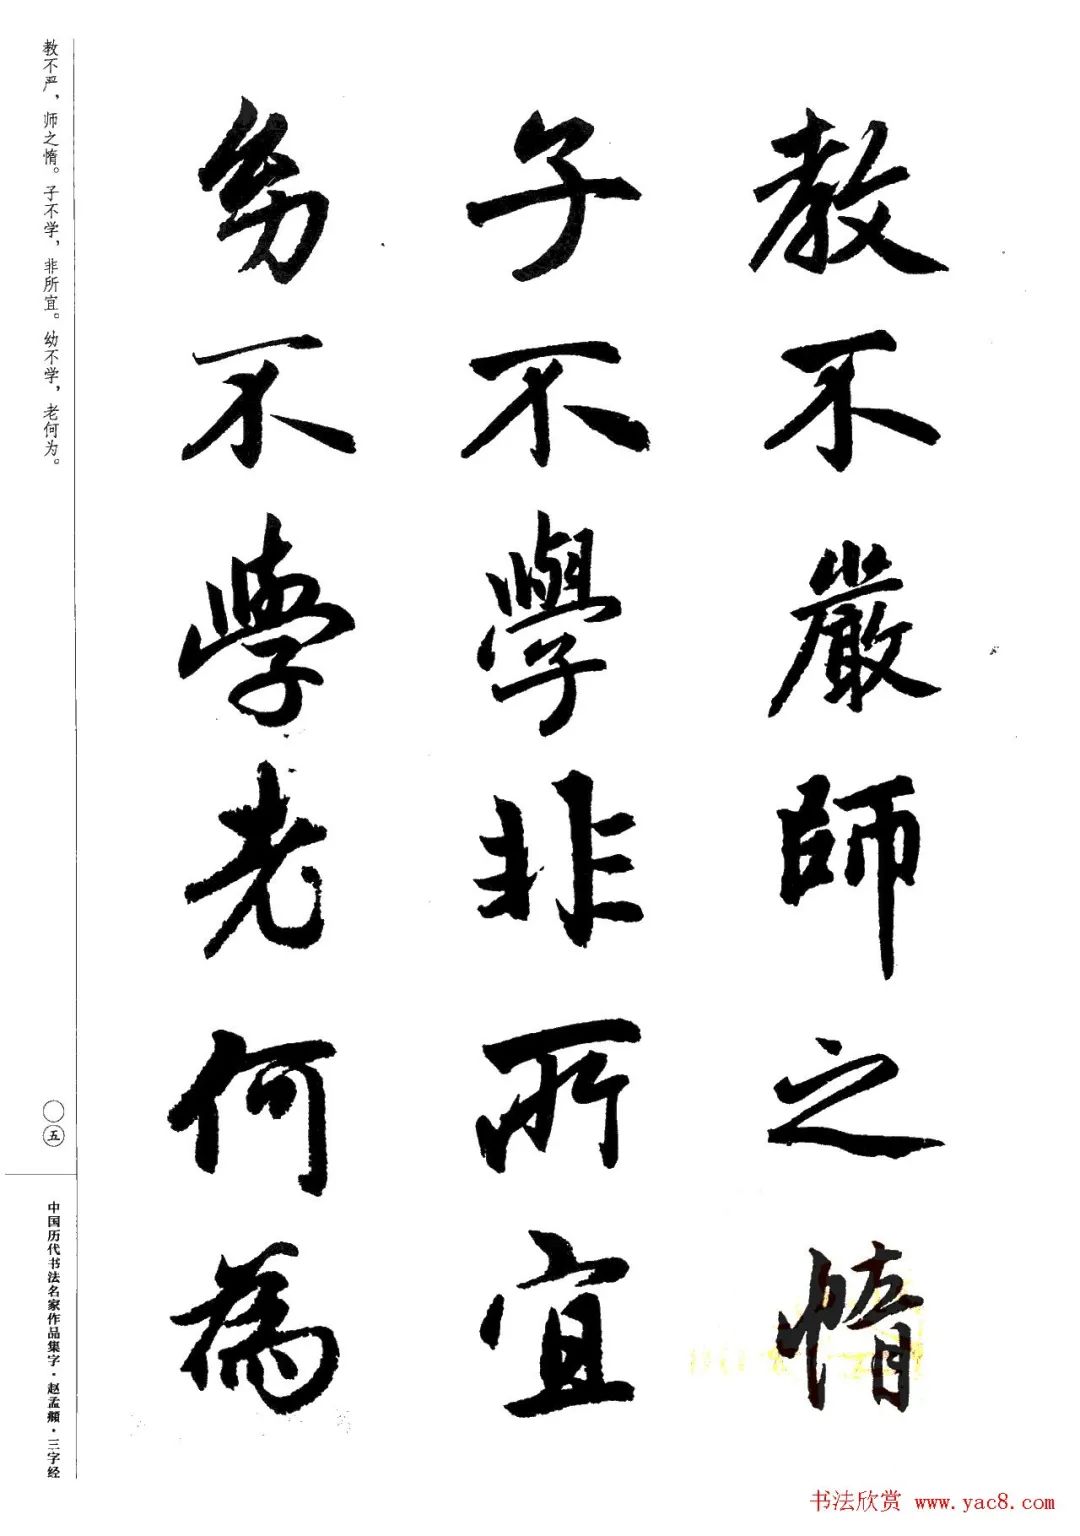 教不嚴師之惰
子不學非所宜
幼不學老何為
教不严，师之惰。子不学，非所宜。幼不学，老何为。
〇五
中国历代书法名家作品集字·赵孟頫·三字经
书法欣赏 www.yac8.com